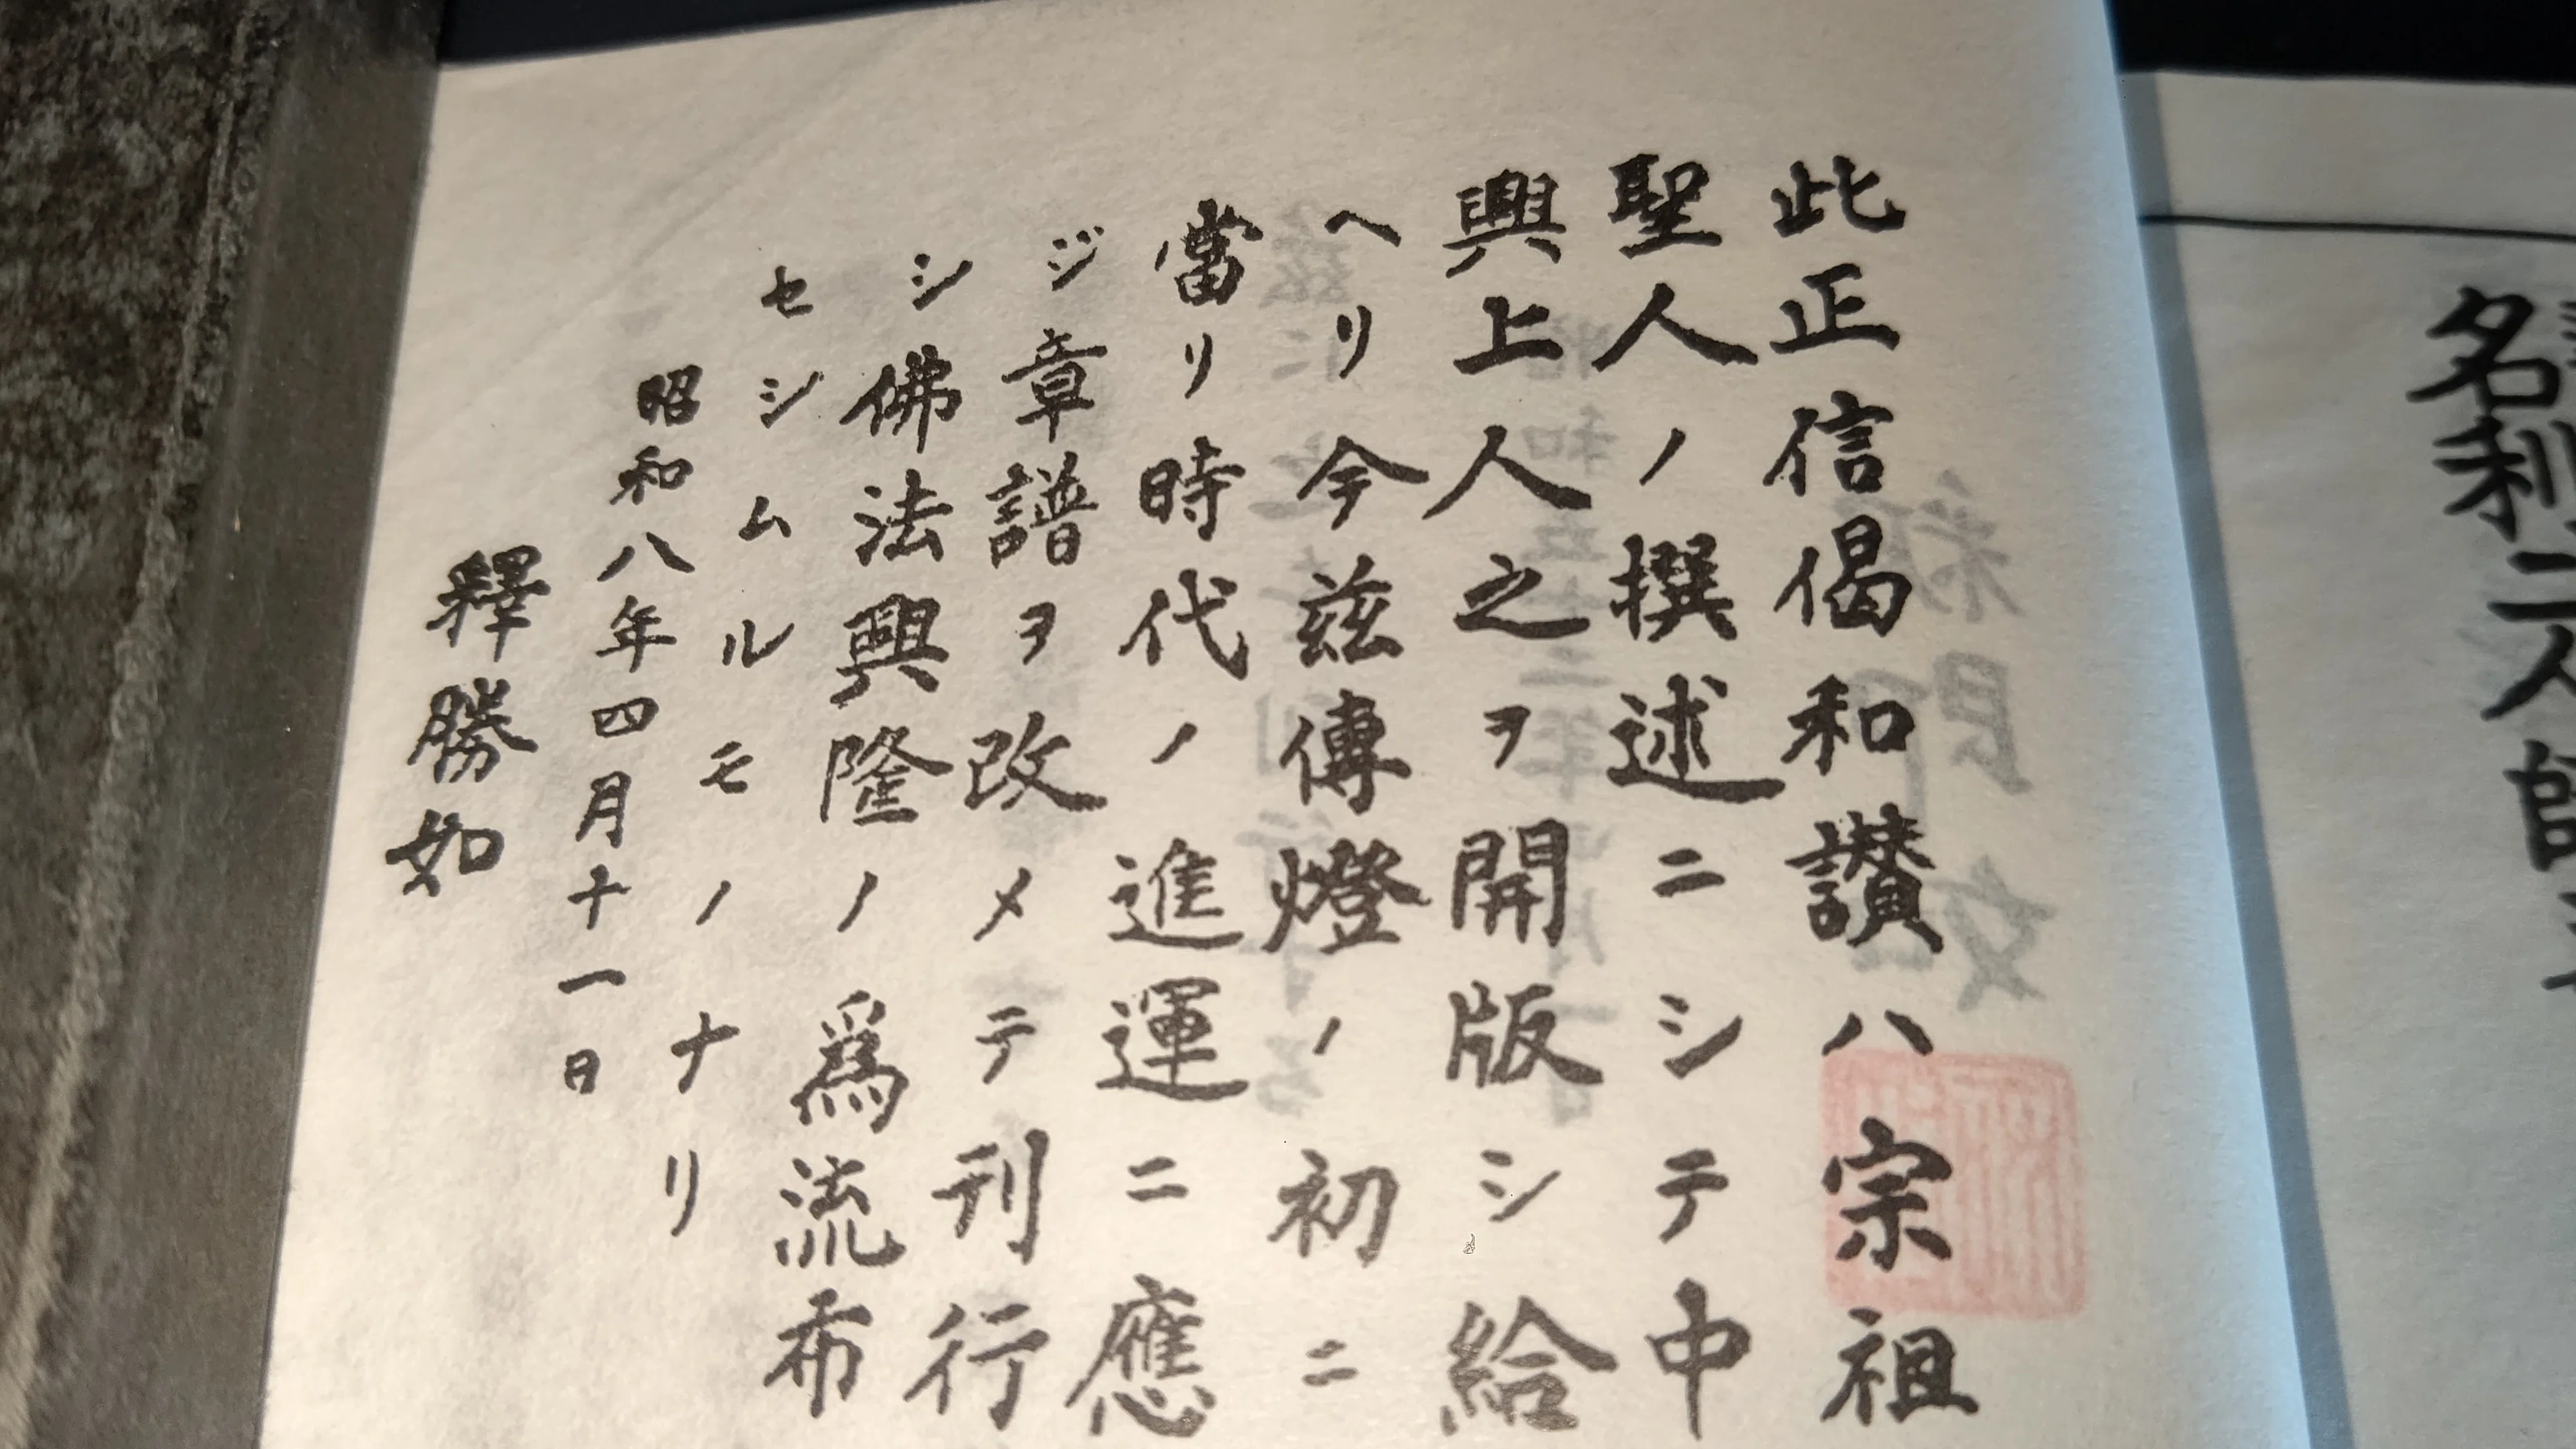 此正信偈和讃ハ宗祖
聖人ノ撰述ニシテ中
興上人之ヲ開版シ給
ヘリ今茲傳燈ノ初ニ
當リ時代ノ進運ニ應
ジ章譜ヲ改メテ刊行
シ佛法興隆ノ爲流布
セシムルモノナリ
昭和八年四月十一日
釋勝如
名利